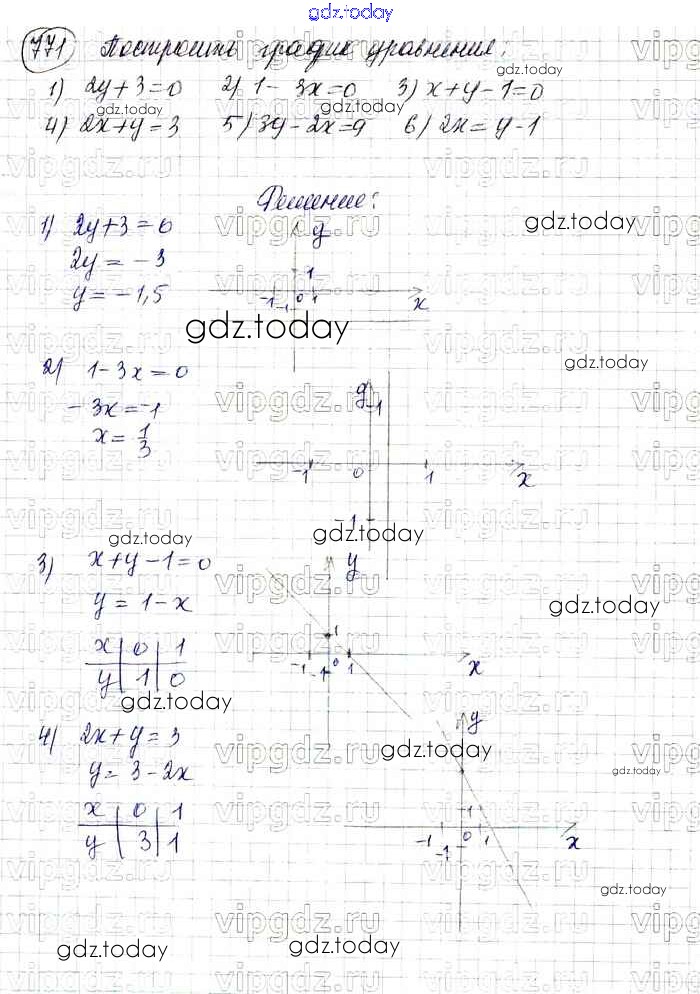 gdz.today
771 Построить график уравнения:
gdz.today
1) 2y+3=0 2) 1-3x=0 3) x+y-1=0
gdz.today gdz.today
4) 2x+y=3 5) 3y-2x=9 6) 2x=y-1
vipgdz.ru vipgdz.ru
Решение:
1) 2y+3=0 y
gdz.today
2y=-3 1
y=-1,5 -1 -1 0 1 x
gdz.today
gdz.today
2) 1-3x=0 y
-3x=-1 1
x=1/3 -1 0 1 x
-1
gdz.today gdz.today
3) x+y-1=0 y
y=1-x
gdz.today
x 0 1 1
-1 -1 0 1 x
y 1 0
gdz.today
4) 2x+y=3 y
gdz.today
y=3-2x
gdz.today
x 0 1 1
y 3 1 -1 0 1 x
-1
gdz.today
vipgdz.ru vipgdz.ru
gdz.today gdz.today